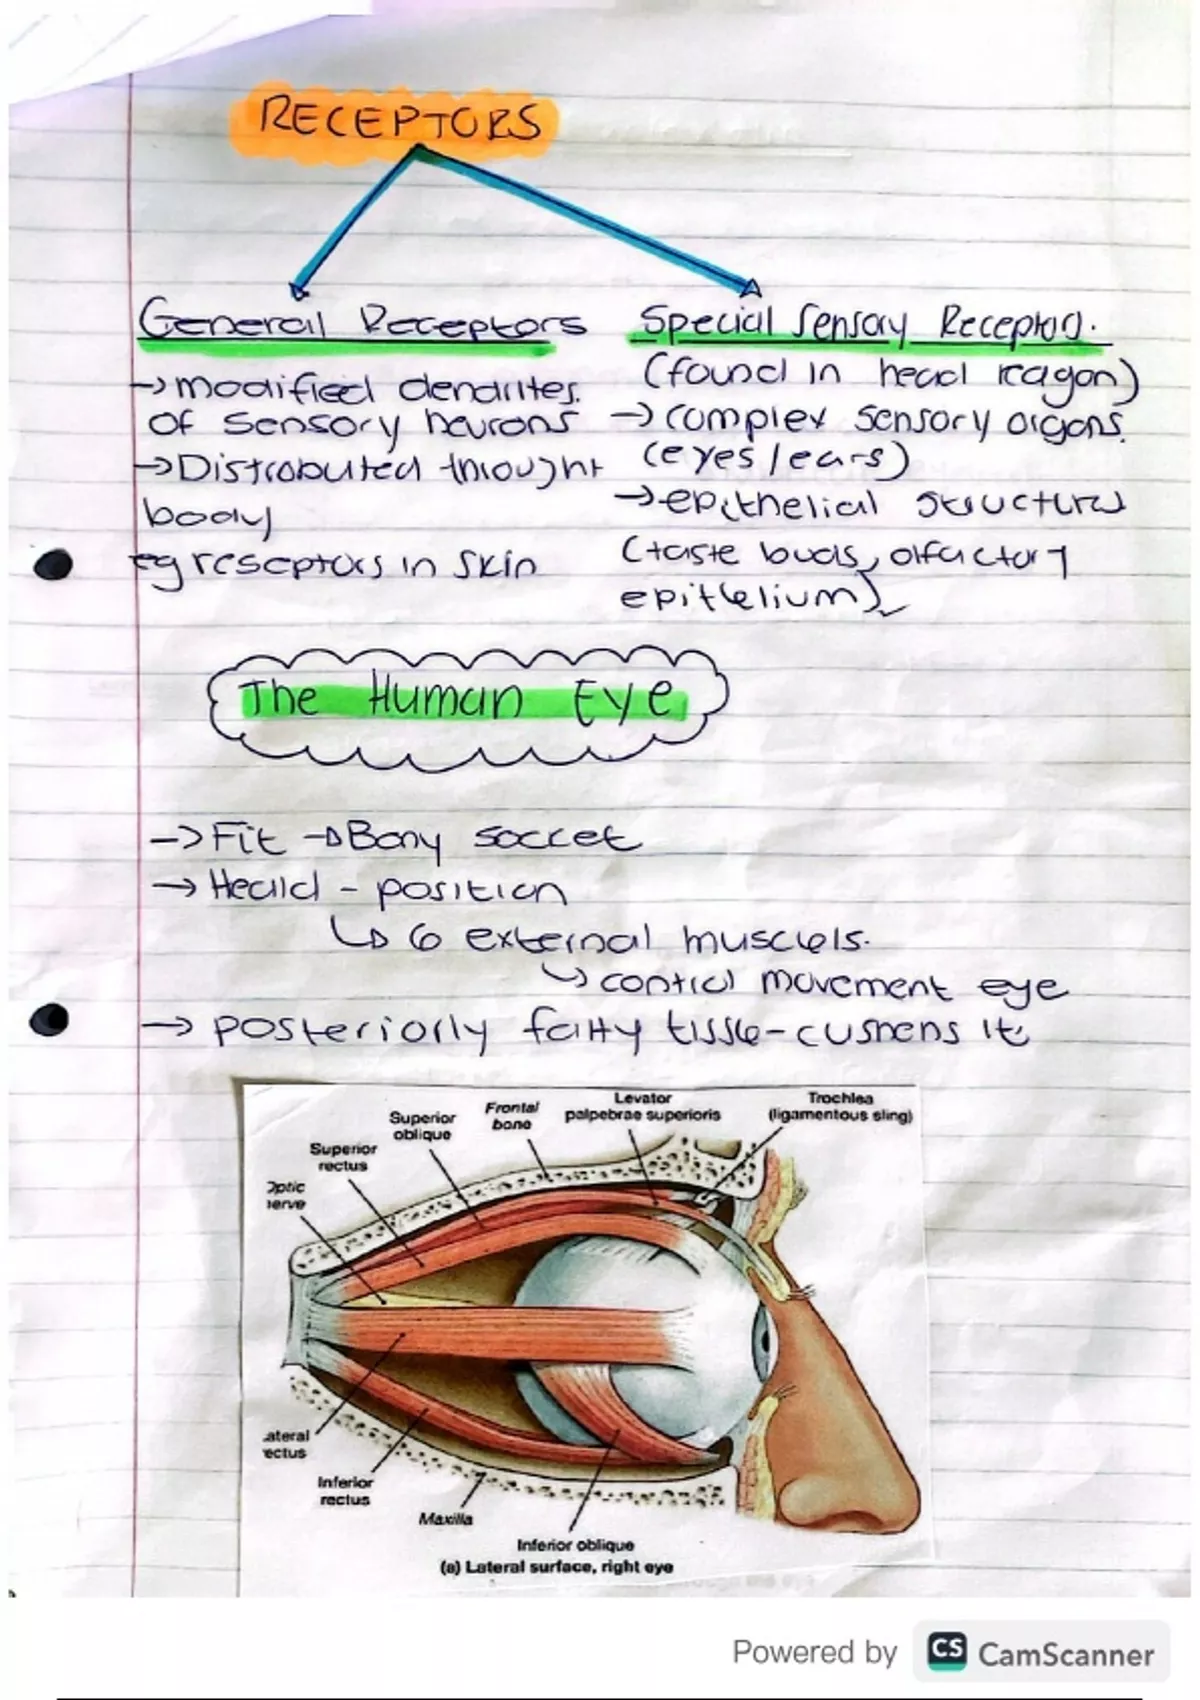 RECEPTORS
General Receptors
→ modified dendrites.
of sensory neurons
→ Distrobuted throught
body
eg reseptors in skin
Special Sensory Receptors.
(found in head reagon)
→ complex sensory organs.
(eyes/ears)
→ epithelial structures
(taste buds, olfactory
epithelium)
The Human Eye
→ Fit → Bony soccet
→ Heald - position
↳ 6 external muscels.
↳ control movement eye
→ posteriorly fatty tissue - cushens it.
Levator
palpebrae superioris
Trochlea
(ligamentous sling)
Frontal
bone
Superior
oblique
Superior
rectus
Optic
nerve
Lateral
rectus
Inferior
rectus
Maxilla
Inferior oblique
(a) Lateral surface, right eye
Powered by CS CamScanner